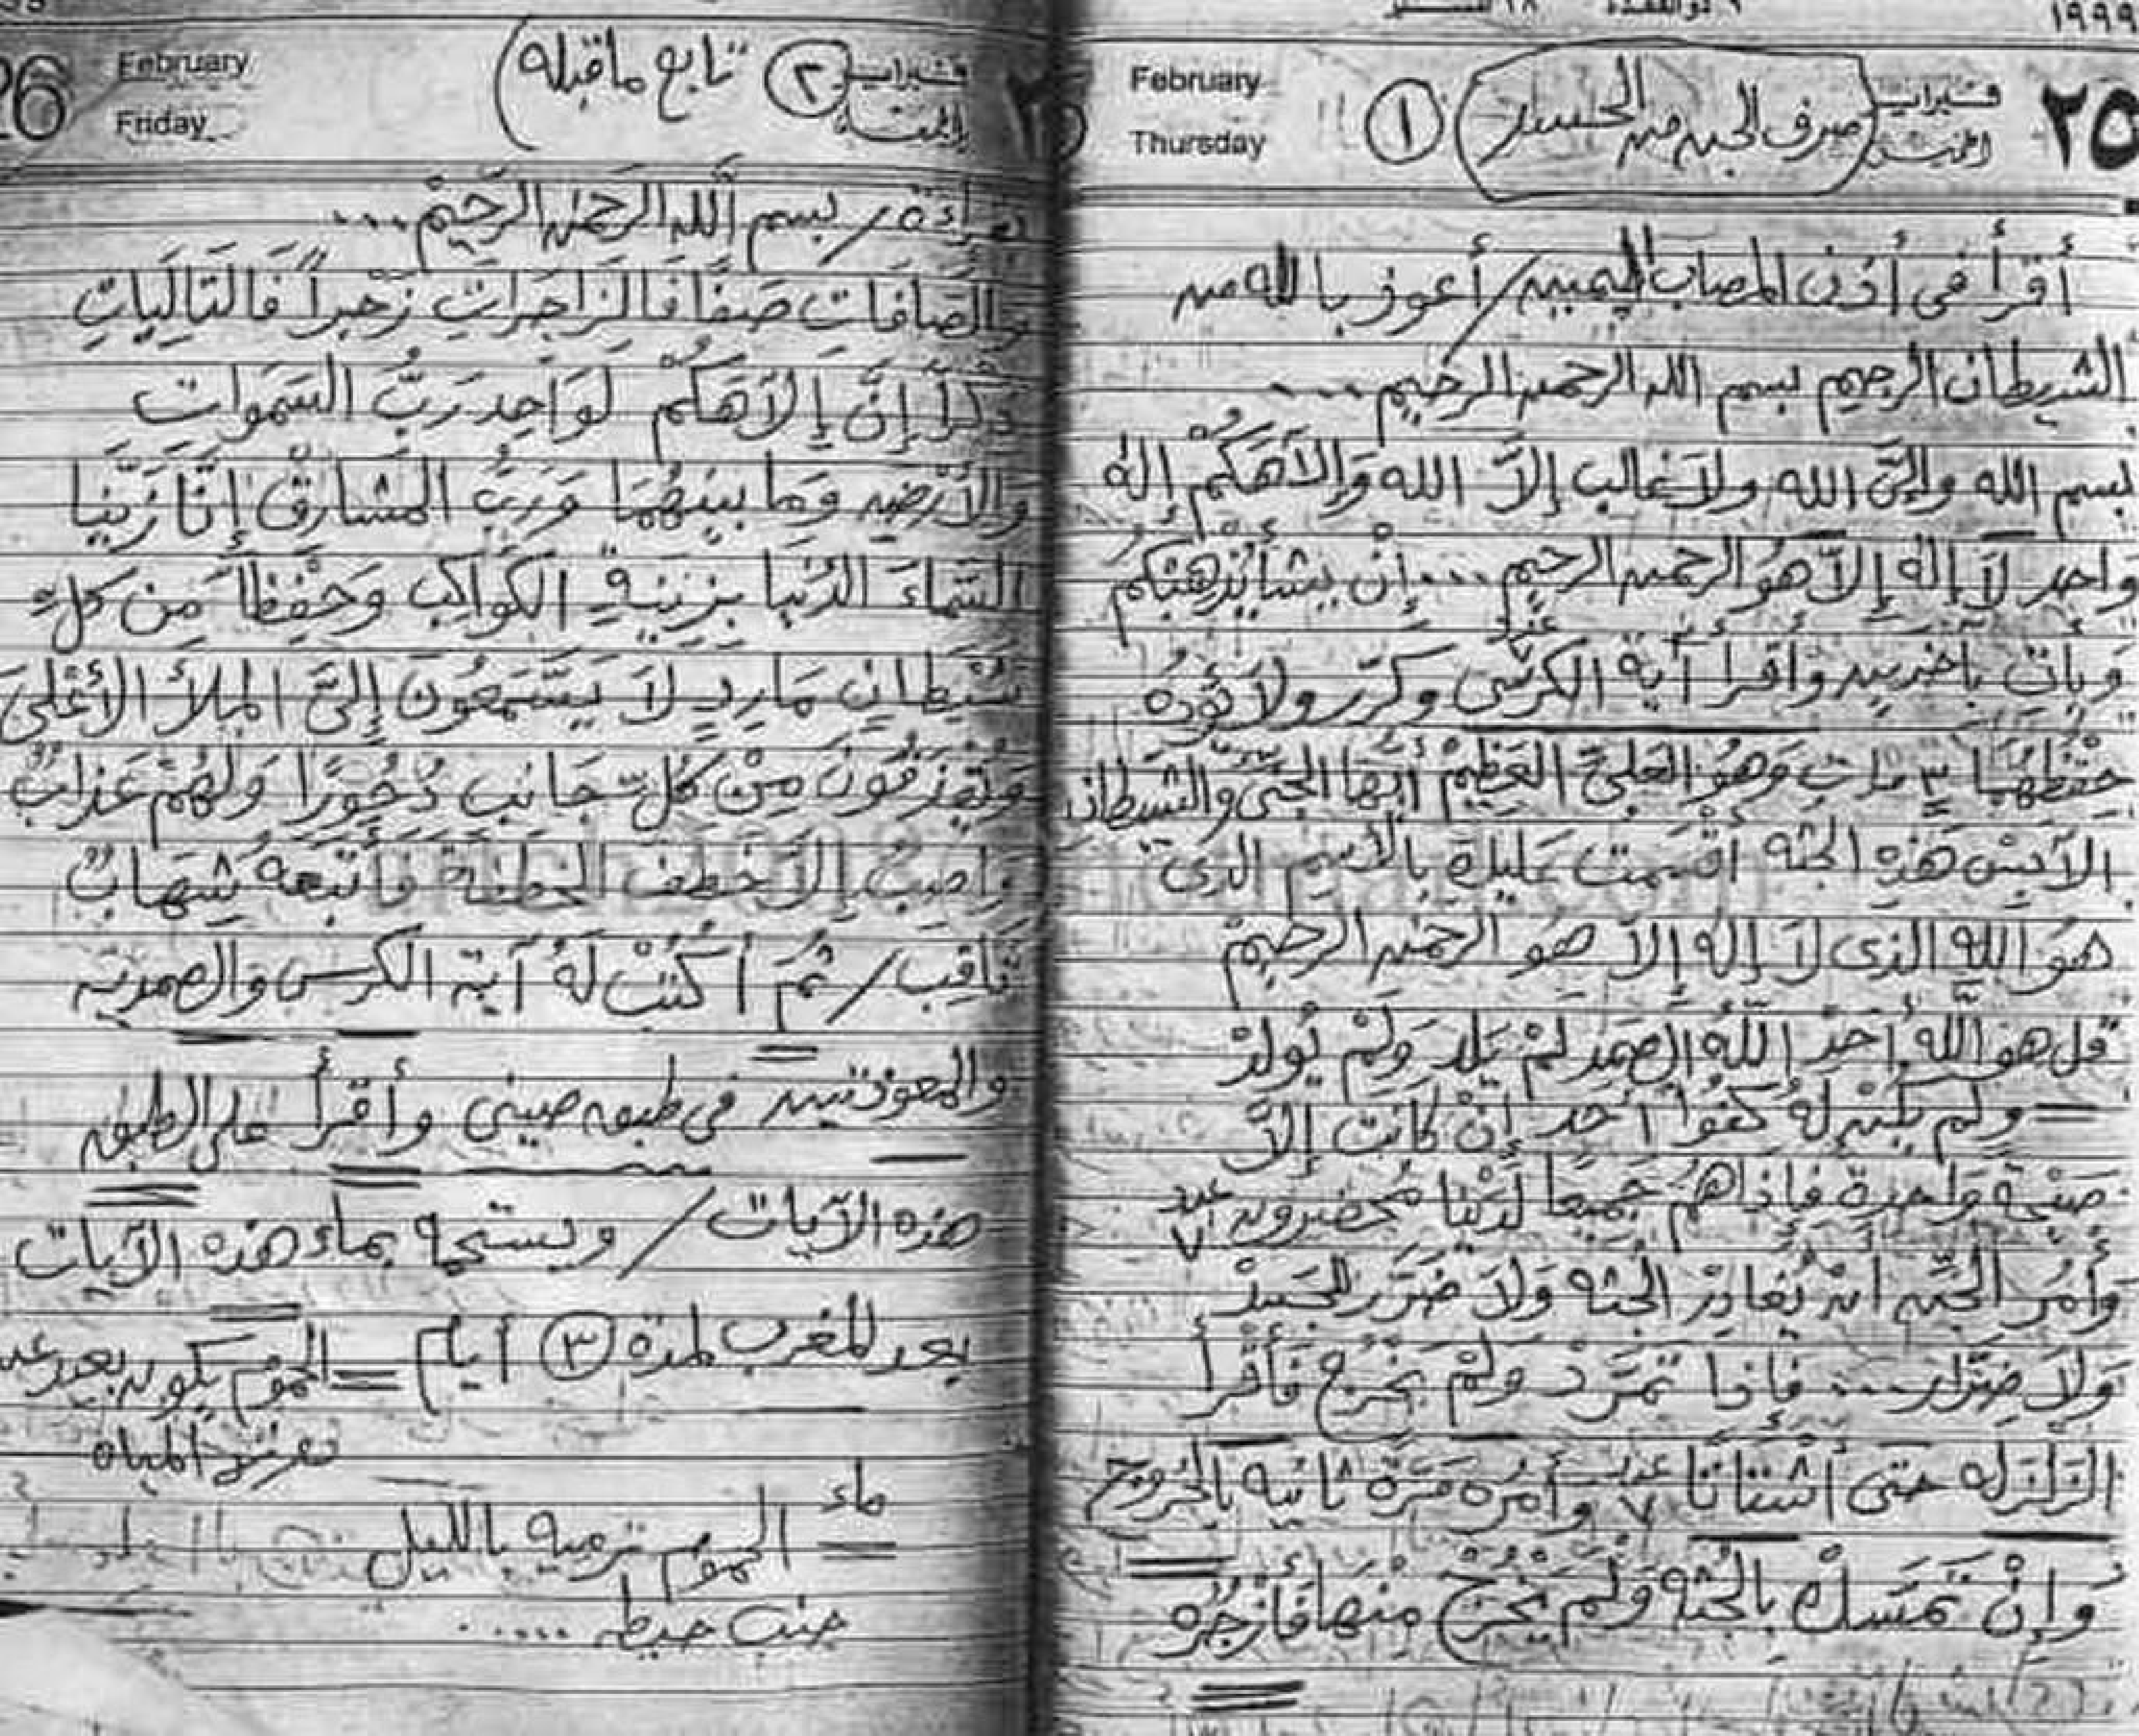 ١٩٩٩
٢٥
فبراير
الخميس
صرف الجن من الجسد
١
February
Thursday
أقرأ فى أذن المصاب اليمين / أعوذ بالله من
الشيطان الرجيم بسم الله الرحمن الرحيم ....
بسم الله وإلى الله ولا غالب إلا الله وَإلاَهَكُم إله
واحد لاَ إله إلاّ هوَ الرحمن الرحيم .... إنْ يشأ يُذهبكم
وَيأتِ بآخرين وأقرأ آية الكرسى وكرّر ولا يَؤده
حِفْظهُمَا ٣ مرات وَهوُ العَلىَّ العَظِيمْ أيّها الجنّى والشيطان
الآبس هَذِهِ الجثه أقسمت عليك بالأسم الذى
هوَ الله الذى لاَ إله إلاّ هوَ الرحمن الرحيمْ
قل هو اللَّهُ أحَدْ اللَّهُ الصمَد لمْ يَلد وَلمْ يُولدْ
ولم يكن لهُ كفوًا أحَد إنْ كانت إلاَّ
صَيْحَة وَاحدة فإِذا هُمْ جَميعًا لدَيْنا مُحضرون عدد ٧
وَأمُر الجنّ أن يُغادِرْ الجثه وَلاَ ضَرَر للجَسدْ
وَلاَ ضِرَار .... فأذا تمَرّدْ ولمْ يخْرُج فَأقرأ
الزلزله حتى أشتاتًا عدد ٧ وأمرُه مَرّة ثانيه بالخروج
وَإنْ تَمَسّكْ بالجُثه وَلمْ يَخْرُجْ مِنْهَا فأزجُرُه
26
February
Friday
فبراير
الجمعة
٢
تابع ما قبله
بقراءة / بسم اللَّه الرَّحمَن الرَّحيِمْ ....
والصَافَات صَفًا فَالزَاجِرَاتِ زَجراً فَالتَالِيَاتِ
ذِكراً إنَّ إلاَهَكُمْ لَوَاحِد رَبُّ السَمَوات
وَالأرْضِ وَمَا بينَهُمَا وَرَبُّ المَشارِقْ إنّا زَيّنا
السَّمَاءَ الدُنيا بزِينةٍ الكَواكِب وَحَفِظاً مَن كلِ
شَيْطانٍ مَارِدٍ لاَ يَسّمَعُونَ إلىَ الملأ الأعْلىَ
وَيُقذفونَ مِنْ كُلّ جَانب دُحُورًا وَلهُمْ عَذابٌ
وَاصِبٌ إلاَ خَطِفَ الخطفة فَأتبَعهُ شِهَابٌ
ثاقِب / ثمَ أكتُبْ لَهُ آية الكرسى والصمديه
والمعوذتين فى طبق صينى وأقرأ على الطبق
هذه الآيات / ويستحمه بماء هذه الآيات
بعد المغرب لمدة ٣ أيام = الحموم يكون بعد
المياه
ماء
الحموم ترميه بالليل
جنب حيطه .....